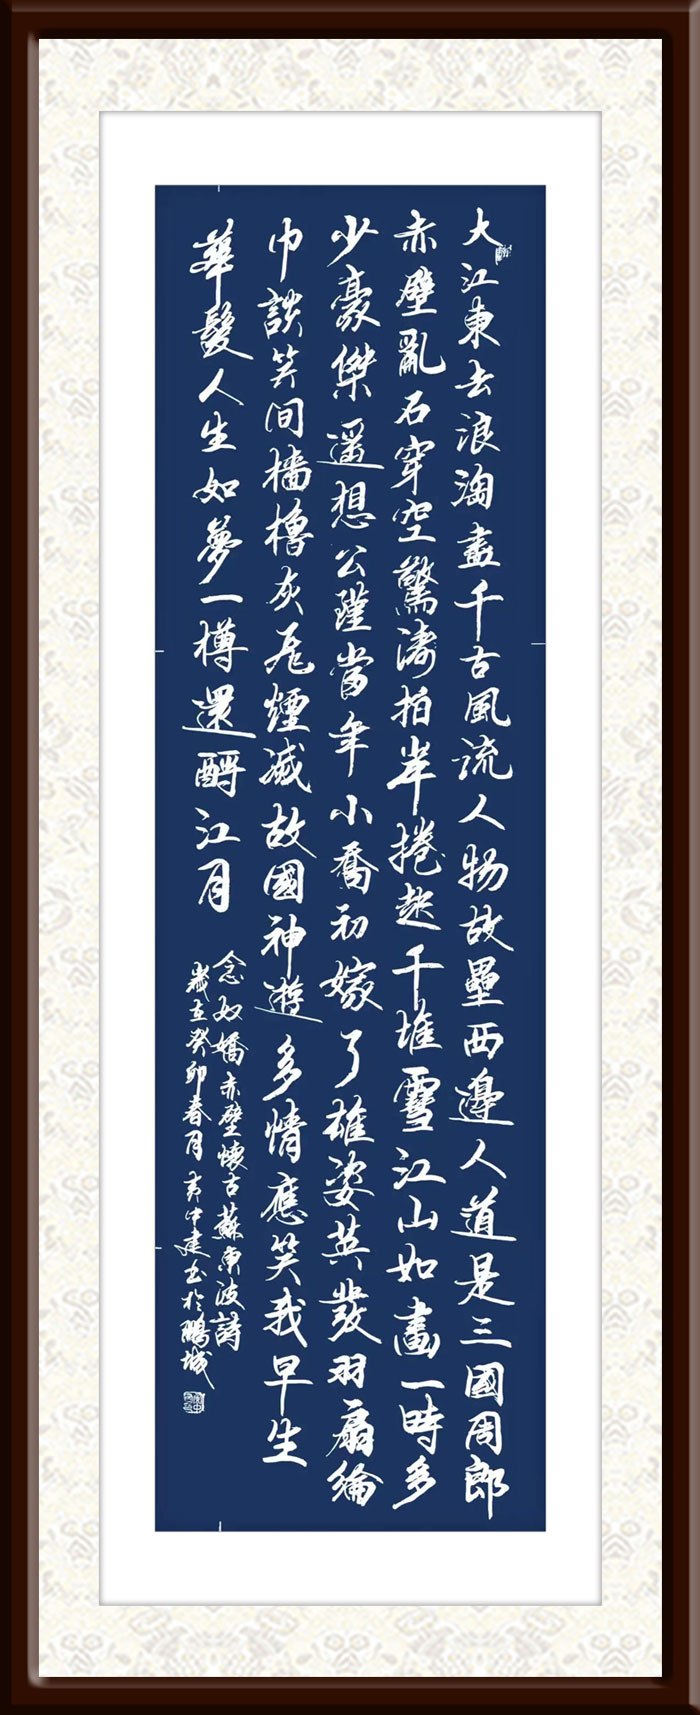 大江東去浪淘盡千古風流人物故壘西邊人道是三國周郎
赤壁亂石穿空驚濤拍岸捲起千堆雪江山如畫一時多
少豪傑遥想公瑾當年小喬初嫁了雄姿英發羽扇綸
巾談笑间檣櫓灰飛煙滅故國神遊多情應笑我早生
華髮人生如夢一樽還酹江月
念奴嬌赤壁懷古蘇東波詩
歲在癸卯春月中建书於鵬城